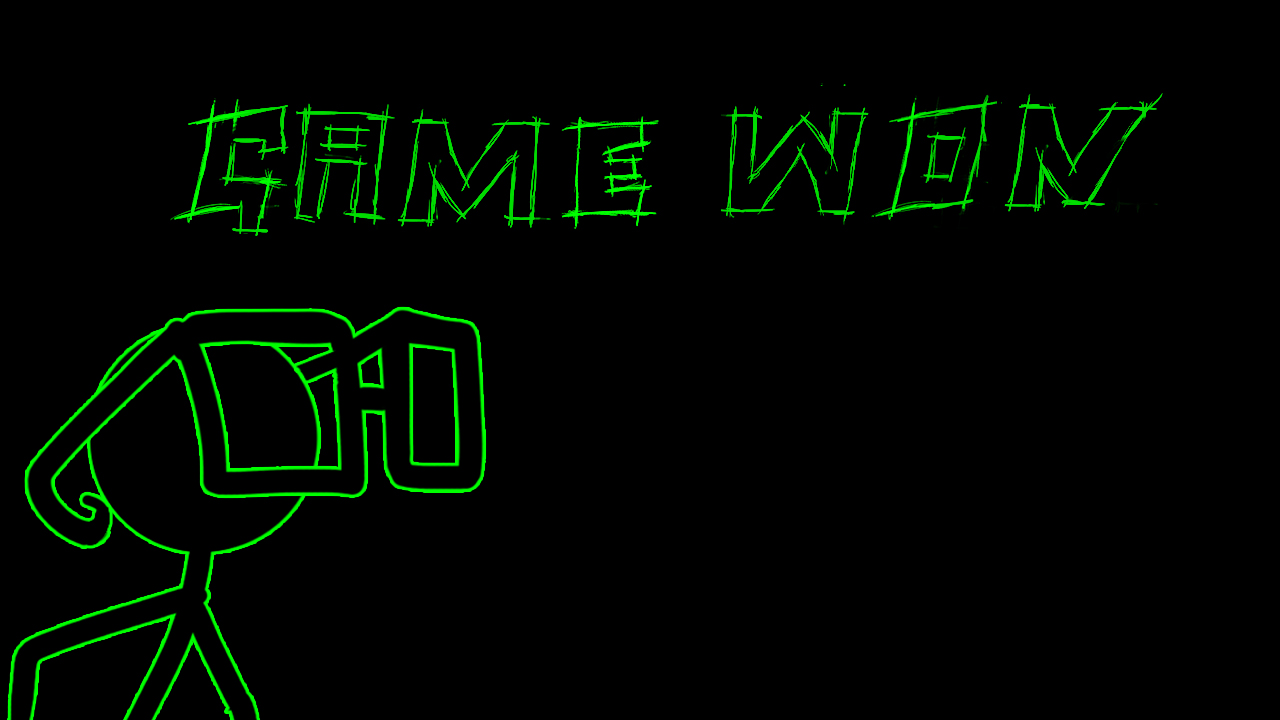 GAME WON